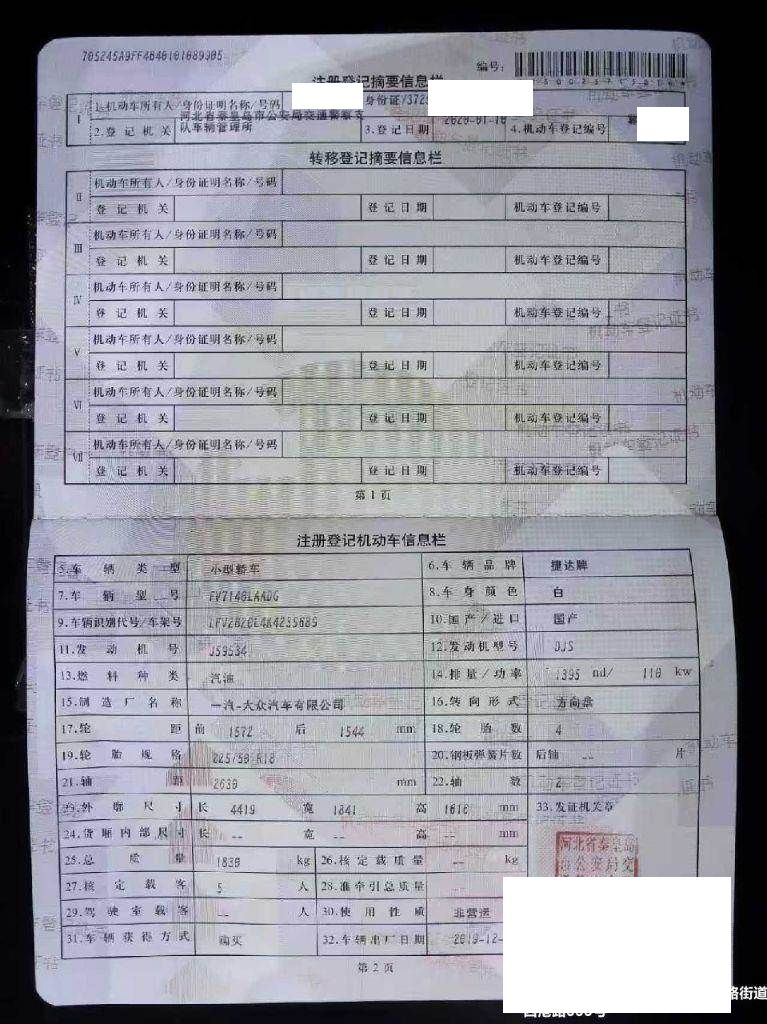 编号:
注册登记摘要信息栏
I 1.机动车所有人/身份证明名称/号码 身份证/372
2.登记机关 河北省秦皇岛市公安局交通警察支队车辆管理所 3.登记日期 2020-01-10 4.机动车登记编号
转移登记摘要信息栏
II 机动车所有人/身份证明名称/号码
登记机关 登记日期 机动车登记编号
III 机动车所有人/身份证明名称/号码
登记机关 登记日期 机动车登记编号
IV 机动车所有人/身份证明名称/号码
登记机关 登记日期 机动车登记编号
V 机动车所有人/身份证明名称/号码
登记机关 登记日期 机动车登记编号
VI 机动车所有人/身份证明名称/号码
登记机关 登记日期 机动车登记编号
VII 机动车所有人/身份证明名称/号码
登记机关 登记日期 机动车登记编号
第1页
注册登记机动车信息栏
5.车辆类型 小型轿车 6.车辆品牌 捷达牌
7.车辆型号 FV7140LAADG 8.车身颜色 白
9.车辆识别代号/车架号 10.国产/进口 国产
11.发动机号 J59534 12.发动机型号 DJS
13.燃料种类 汽油 14.排量/功率 1395 ml/ 110 kw
15.制造厂名称 一汽-大众汽车有限公司 16.转向形式 方向盘
17.轮距 前 1572 后 1544 mm 18.轮胎数 4
19.轮胎规格 225/50 R18 20.钢板弹簧片数 后轴 -- 片
21.轴距 2630 mm 22.轴数 2
23.外廓尺寸 长 4419 宽 1841 高 1616 mm 33.发证机关章
24.货厢内部尺寸 长 -- 宽 -- 高 -- mm
25.总质量 1830 kg 26.核定载质量 -- kg
河北省秦皇岛
市公安局交
27.核定载客 5 人 28.准牵引总质量 --
29.驾驶室载客 -- 人 30.使用性质 非营运
31.车辆获得方式 购买 32.车辆出厂日期 2019-12-
第2页
路街道